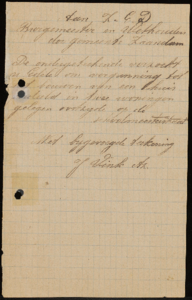 Aan Z-E-D
Burgemeester en Wethouders
der gemeente Zaandam
De ondergeteekende verzoekt
beleefd om vergunning tot
bouwen van een huis
in twee woningen
gelegen op de
Met bijgevoegde teekening
J Vink Az